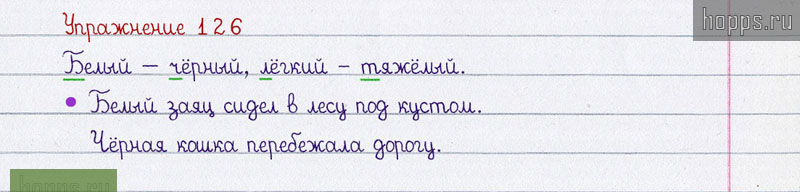 Упражнение 126
hopps.ru
Белый – чёрный, лёгкий – тяжёлый.
• Белый заяц сидел в лесу под кустом.
Чёрная кошка перебежала дорогу.
hopps.ru